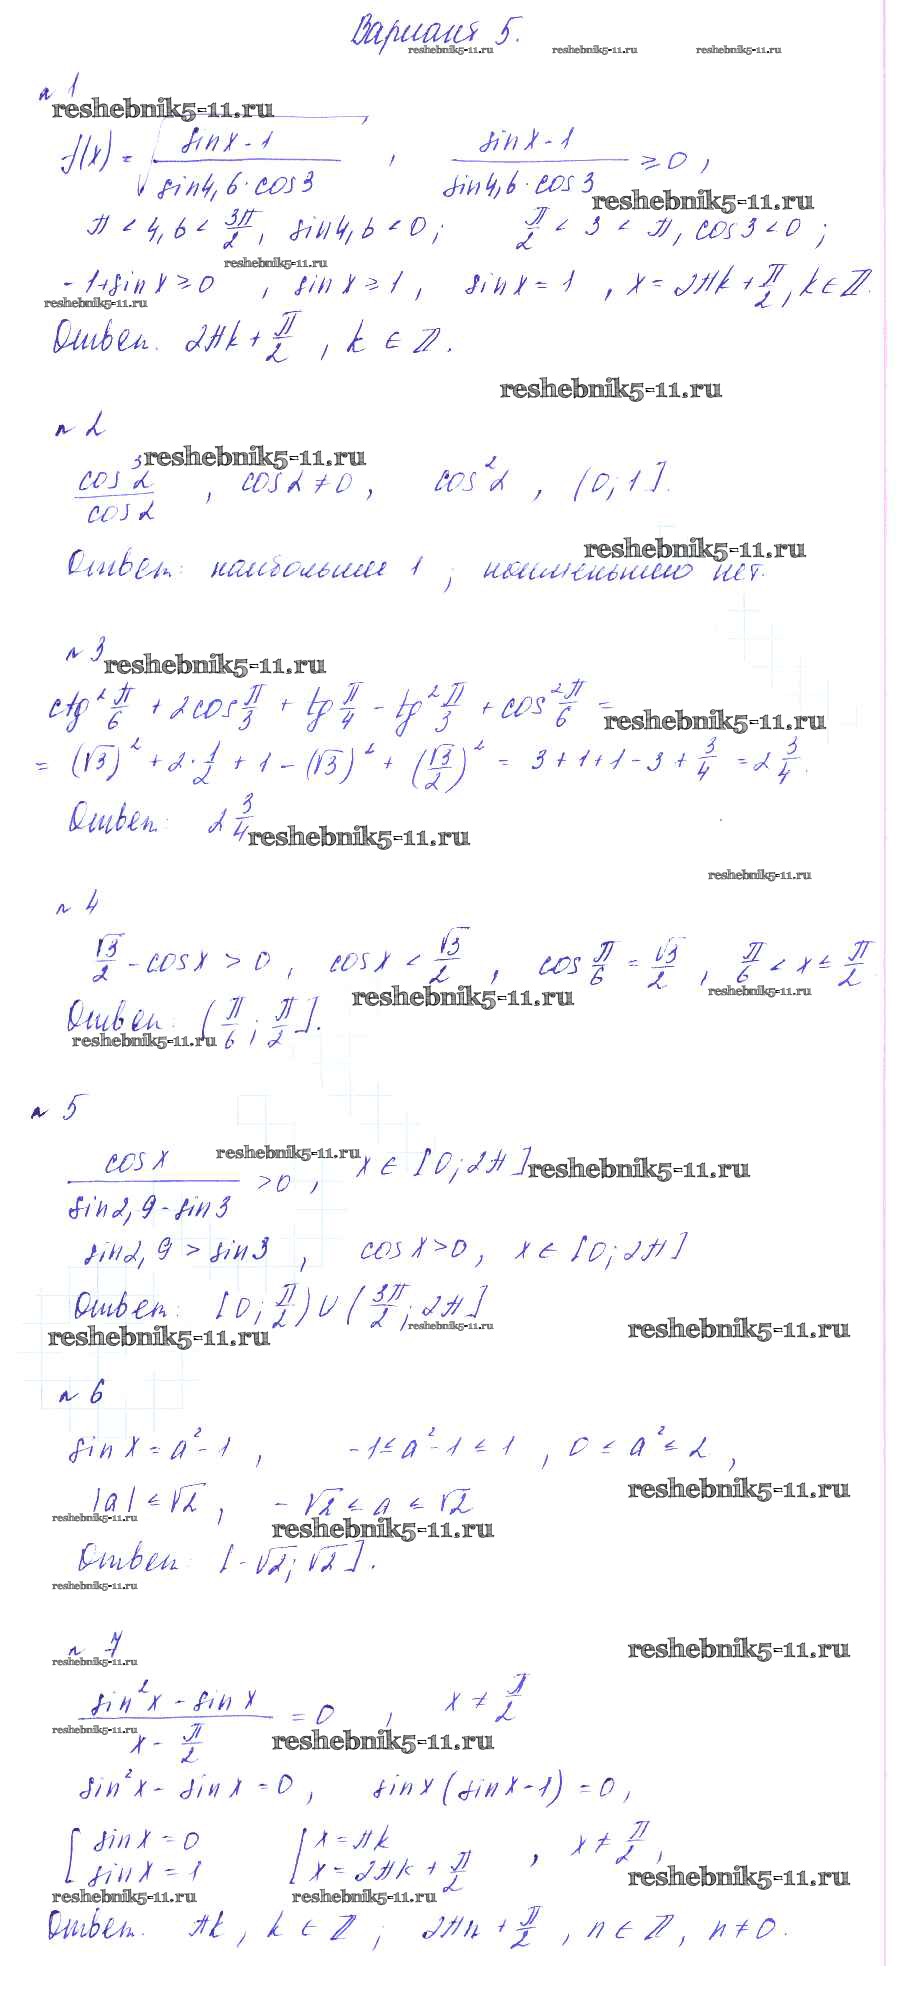 Вариант 5.
reshebnik5-11.ru reshebnik5-11.ru reshebnik5-11.ru
№ 1
reshebnik5-11.ru
f(x) = √((sin x - 1)/(sin 4,6 · cos 3)) , (sin x - 1)/(sin 4,6 · cos 3) ≥ 0 ,
reshebnik5-11.ru
π < 4,6 < 3π/2 , sin 4,6 < 0 ; π/2 < 3 < π, cos 3 < 0 ;
reshebnik5-11.ru
-1 + sin x ≥ 0 , sin x ≥ 1 , sin x = 1 , x = 2πk + π/2 , k ∈ ℤ.
reshebnik5-11.ru
Ответ. 2πk + π/2 , k ∈ ℤ.
reshebnik5-11.ru
№ 2
reshebnik5-11.ru
cos³α/cos α , cos α ≠ 0 , cos²α , (0; 1].
reshebnik5-11.ru
Ответ: наибольшее 1 ; наименьшего нет.
№ 3
reshebnik5-11.ru
ctg² π/6 + 2cos π/3 + tg π/4 - tg² π/3 + cos² π/6 =
reshebnik5-11.ru
= (√3)² + 2 · 1/2 + 1 - (√3)² + (√3/2)² = 3 + 1 + 1 - 3 + 3/4 = 2 3/4.
Ответ: 2 3/4
reshebnik5-11.ru
reshebnik5-11.ru
№ 4
√3/2 - cos x > 0 , cos x < √3/2 , cos π/6 = √3/2 , π/6 < x ≤ π/2
reshebnik5-11.ru reshebnik5-11.ru
Ответ: (π/6 ; π/2].
reshebnik5-11.ru
№ 5
reshebnik5-11.ru
cos x/(sin 2,9 - sin 3) > 0 , x ∈ [0; 2π]
reshebnik5-11.ru
sin 2,9 > sin 3 , cos x > 0 , x ∈ [0; 2π]
Ответ: [0; π/2) ∪ (3π/2 ; 2π]
reshebnik5-11.ru reshebnik5-11.ru reshebnik5-11.ru
№ 6
sin x = a² - 1 , -1 ≤ a² - 1 ≤ 1 , 0 ≤ a² ≤ 2 ,
reshebnik5-11.ru
|a| ≤ √2 , -√2 ≤ a ≤ √2
reshebnik5-11.ru reshebnik5-11.ru
Ответ: [-√2; √2].
reshebnik5-11.ru
№ 7
reshebnik5-11.ru reshebnik5-11.ru
(sin²x - sin x)/(x - π/2) = 0 , x ≠ π/2
reshebnik5-11.ru reshebnik5-11.ru
sin²x - sin x = 0 , sin x (sin x - 1) = 0 ,
[ sin x = 0 [ x = πk
[ sin x = 1 [ x = 2πk + π/2 , x ≠ π/2 ,
reshebnik5-11.ru
reshebnik5-11.ru reshebnik5-11.ru
Ответ. πk , k ∈ ℤ ; 2πn + π/2 , n ∈ ℤ , n ≠ 0.